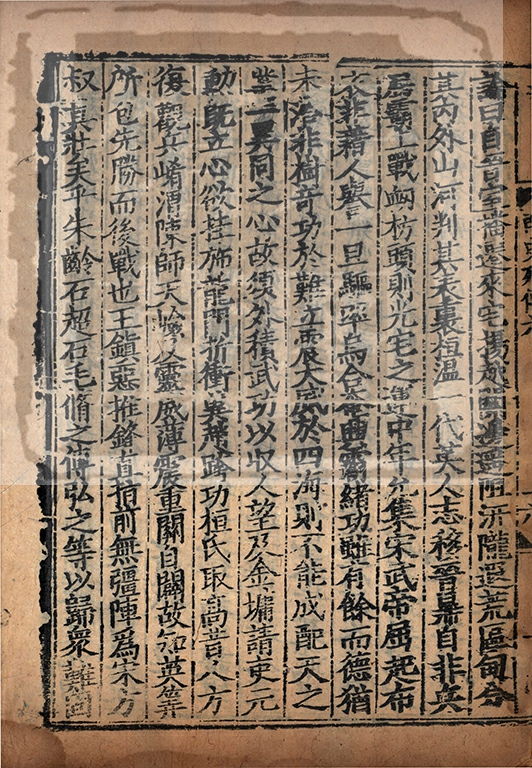 論曰自晉室播遷來宅揚越關邊遙阻汧隴遐荒區甸分
其內外山河判其表裏桓溫一代英人志移晉鼎自非兵
屈霸上戰衂枋頭則光宅之運中年允集宋武帝屈起布
衣非藉人譽一旦驅率烏合奄興霸緒功雖有餘而德猶
未洽非樹奇功於難立震大威於四海則不能成配天之
業一異同之心故須外積武功以収人望及金墉請吏元
勳既立心欲挂斾龍門折衝冀趙跨功桓氏取高昔人方
復觀兵崤渭陳師天嶮及靈威薄震重關自闢故知英筭
所包先勝而後戰也王鎮惡推鋒直指前無彊陣爲宋方
叔其壯矣乎朱齡石超石毛脩之傅弘之等以歸衆難固